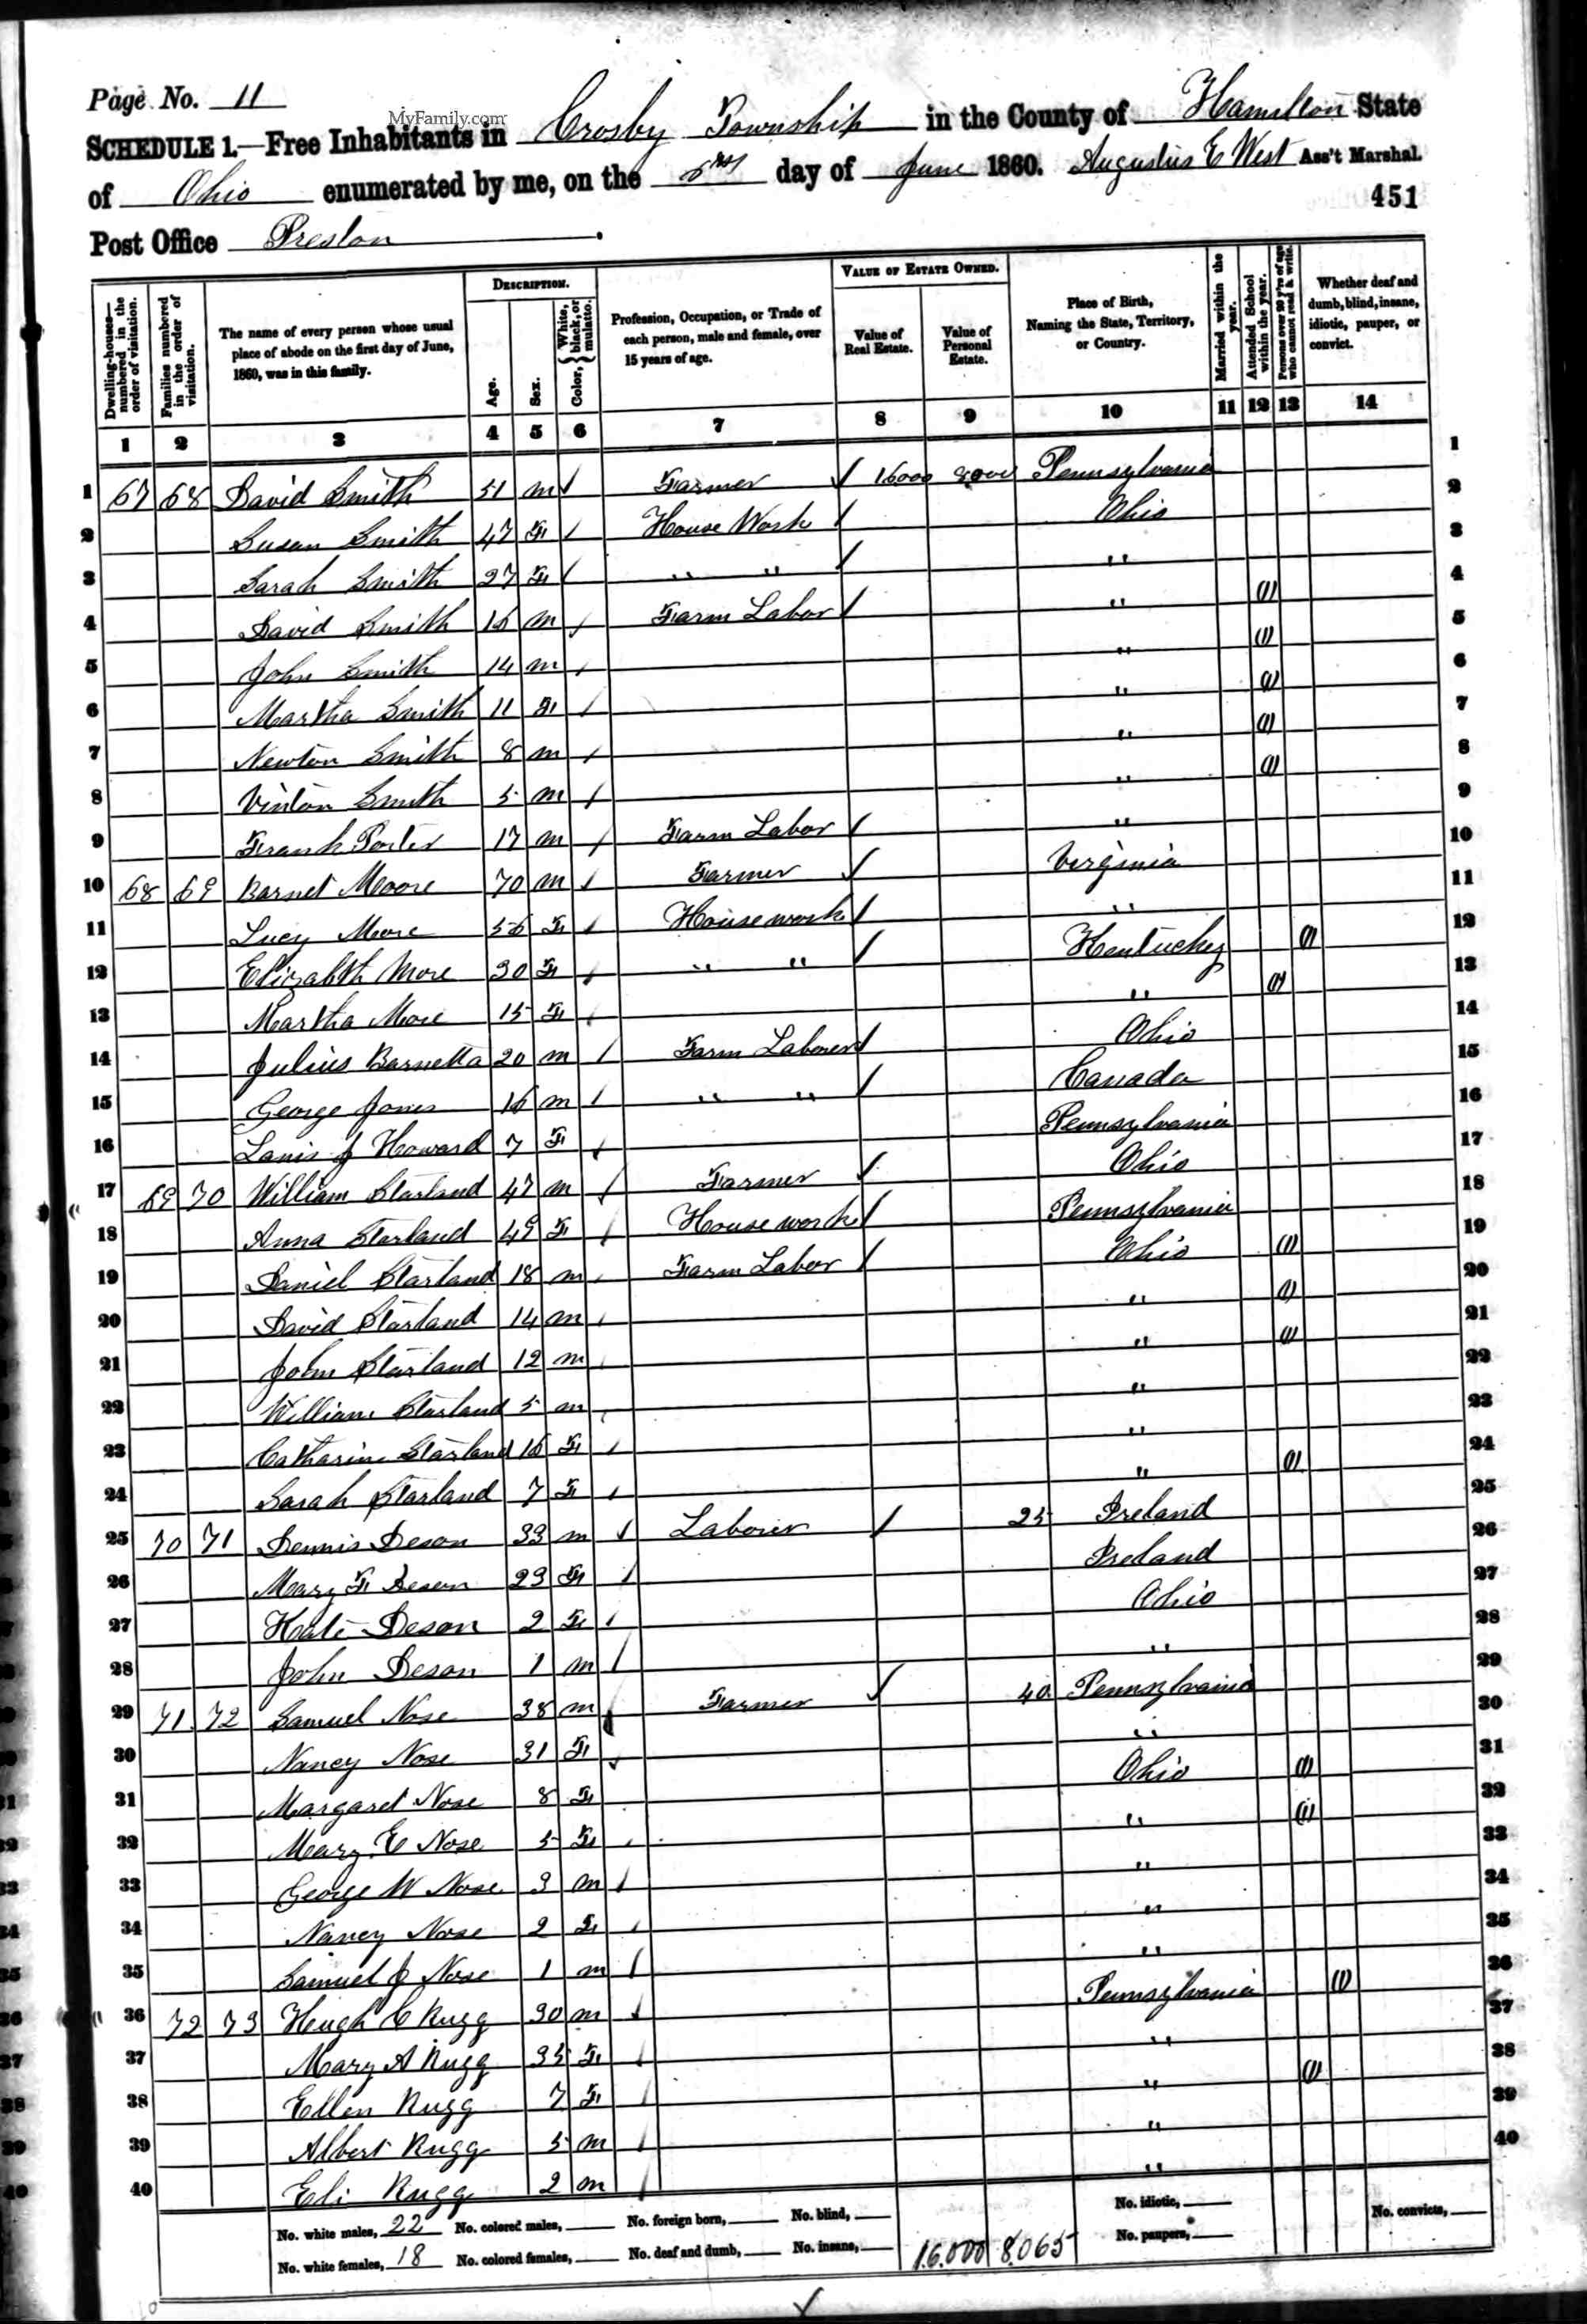 Page No. 11
MyFamily.com
SCHEDULE 1.—Free Inhabitants in Crosby Township in the County of Hamilton State
of Ohio enumerated by me, on the day of June 1860. Augustus E West Ass't Marshal.
451
Post Office Preston
DESCRIPTION. VALUE OF ESTATE OWNED.
Dwelling-houses—numbered in the order of visitation.
Families numbered in the order of visitation.
The name of every person whose usual place of abode on the first day of June, 1860, was in this family.
Age.
Sex.
Color, { White, black, or mulatto.
Profession, Occupation, or Trade of each person, male and female, over 15 years of age.
Value of Real Estate.
Value of Personal Estate.
Place of Birth, Naming the State, Territory, or Country.
Married within the year.
Attended School within the year.
Persons over 20 y'rs of age who cannot read & write.
Whether deaf and dumb, blind, insane, idiotic, pauper, or convict.
1 2 3 4 5 6 7 8 9 10 11 12 13 14
1 67 68 David Smith 51 m / Farmer / 16000 8000 Pennsylvania 1
2 Susan Smith 47 F / House Work / Ohio 2
3 Sarah Smith 27 F / " " / " 3
4 David Smith 16 m / Farm Labor / " (1) 4
5 John Smith 14 m / " (1) 5
6 Martha Smith 11 F / " (1) 6
7 Newton Smith 8 m / " (1) 7
8 Vinton Smith 5 m / " (1) 8
9 Frank Porter 17 m / Farm Labor / " 9
10 68 69 Barnet Moore 70 m / Farmer / Virginia 10
11 Lucy Moore 56 F / House work / " 11
12 Elizabth More 30 F / " " / Kentucky (1) 12
13 Martha More 15 F / " (1) 13
14 Julius Barnetta 20 m / Farm Laborer / Ohio 14
15 George Jones 16 m / " " / Canada 15
16 J Howard 7 F / Pennsylvania 16
17 69 70 William Starland 47 m / Farmer / Ohio 17
18 Anna Starland 49 F / House work / Pennsylvania 18
19 Daniel Starland 18 m / Farm Labor / Ohio (1) 19
20 David Starland 14 m / " (1) 20
21 John Starland 12 m / " (1) 21
22 William Starland 5 m / " 22
23 Catharine Starland 16 F / " 23
24 Sarah Starland 7 F / " (1) 24
25 70 71 Dennis Deson 33 m / Laborer / 25 Ireland 25
26 Mary F Deson 23 F / Ireland 26
27 Kate Deson 2 F / Ohio 27
28 John Deson 1 m / " 28
29 71 72 Samuel Nose 38 m / Farmer / 40 Pennsylvania 29
30 Nancy Nose 31 F / " 30
31 Margaret Nose 8 F Ohio (1) 31
32 Mary E Nose 5 F / " (1) 32
33 George W Nose 3 m / " 33
34 Nancy Nose 2 F / " 34
35 Samuel J Nose 1 m / " 35
36 72 73 Hugh C Rugg 30 m / Pennsylvania (1) 36
37 Mary A Rugg 35 F / " 37
38 Ellen Rugg 7 F / " (1) 38
39 Albert Rugg 5 m / " 39
40 Eli Rugg 2 m / " 40
No. white males, 22 No. colored males, No. foreign born, No. blind, No. idiotic, No. convicts,
No. white females, 18 No. colored females, No. deaf and dumb, No. insane, 16.000 8.065 No. paupers,